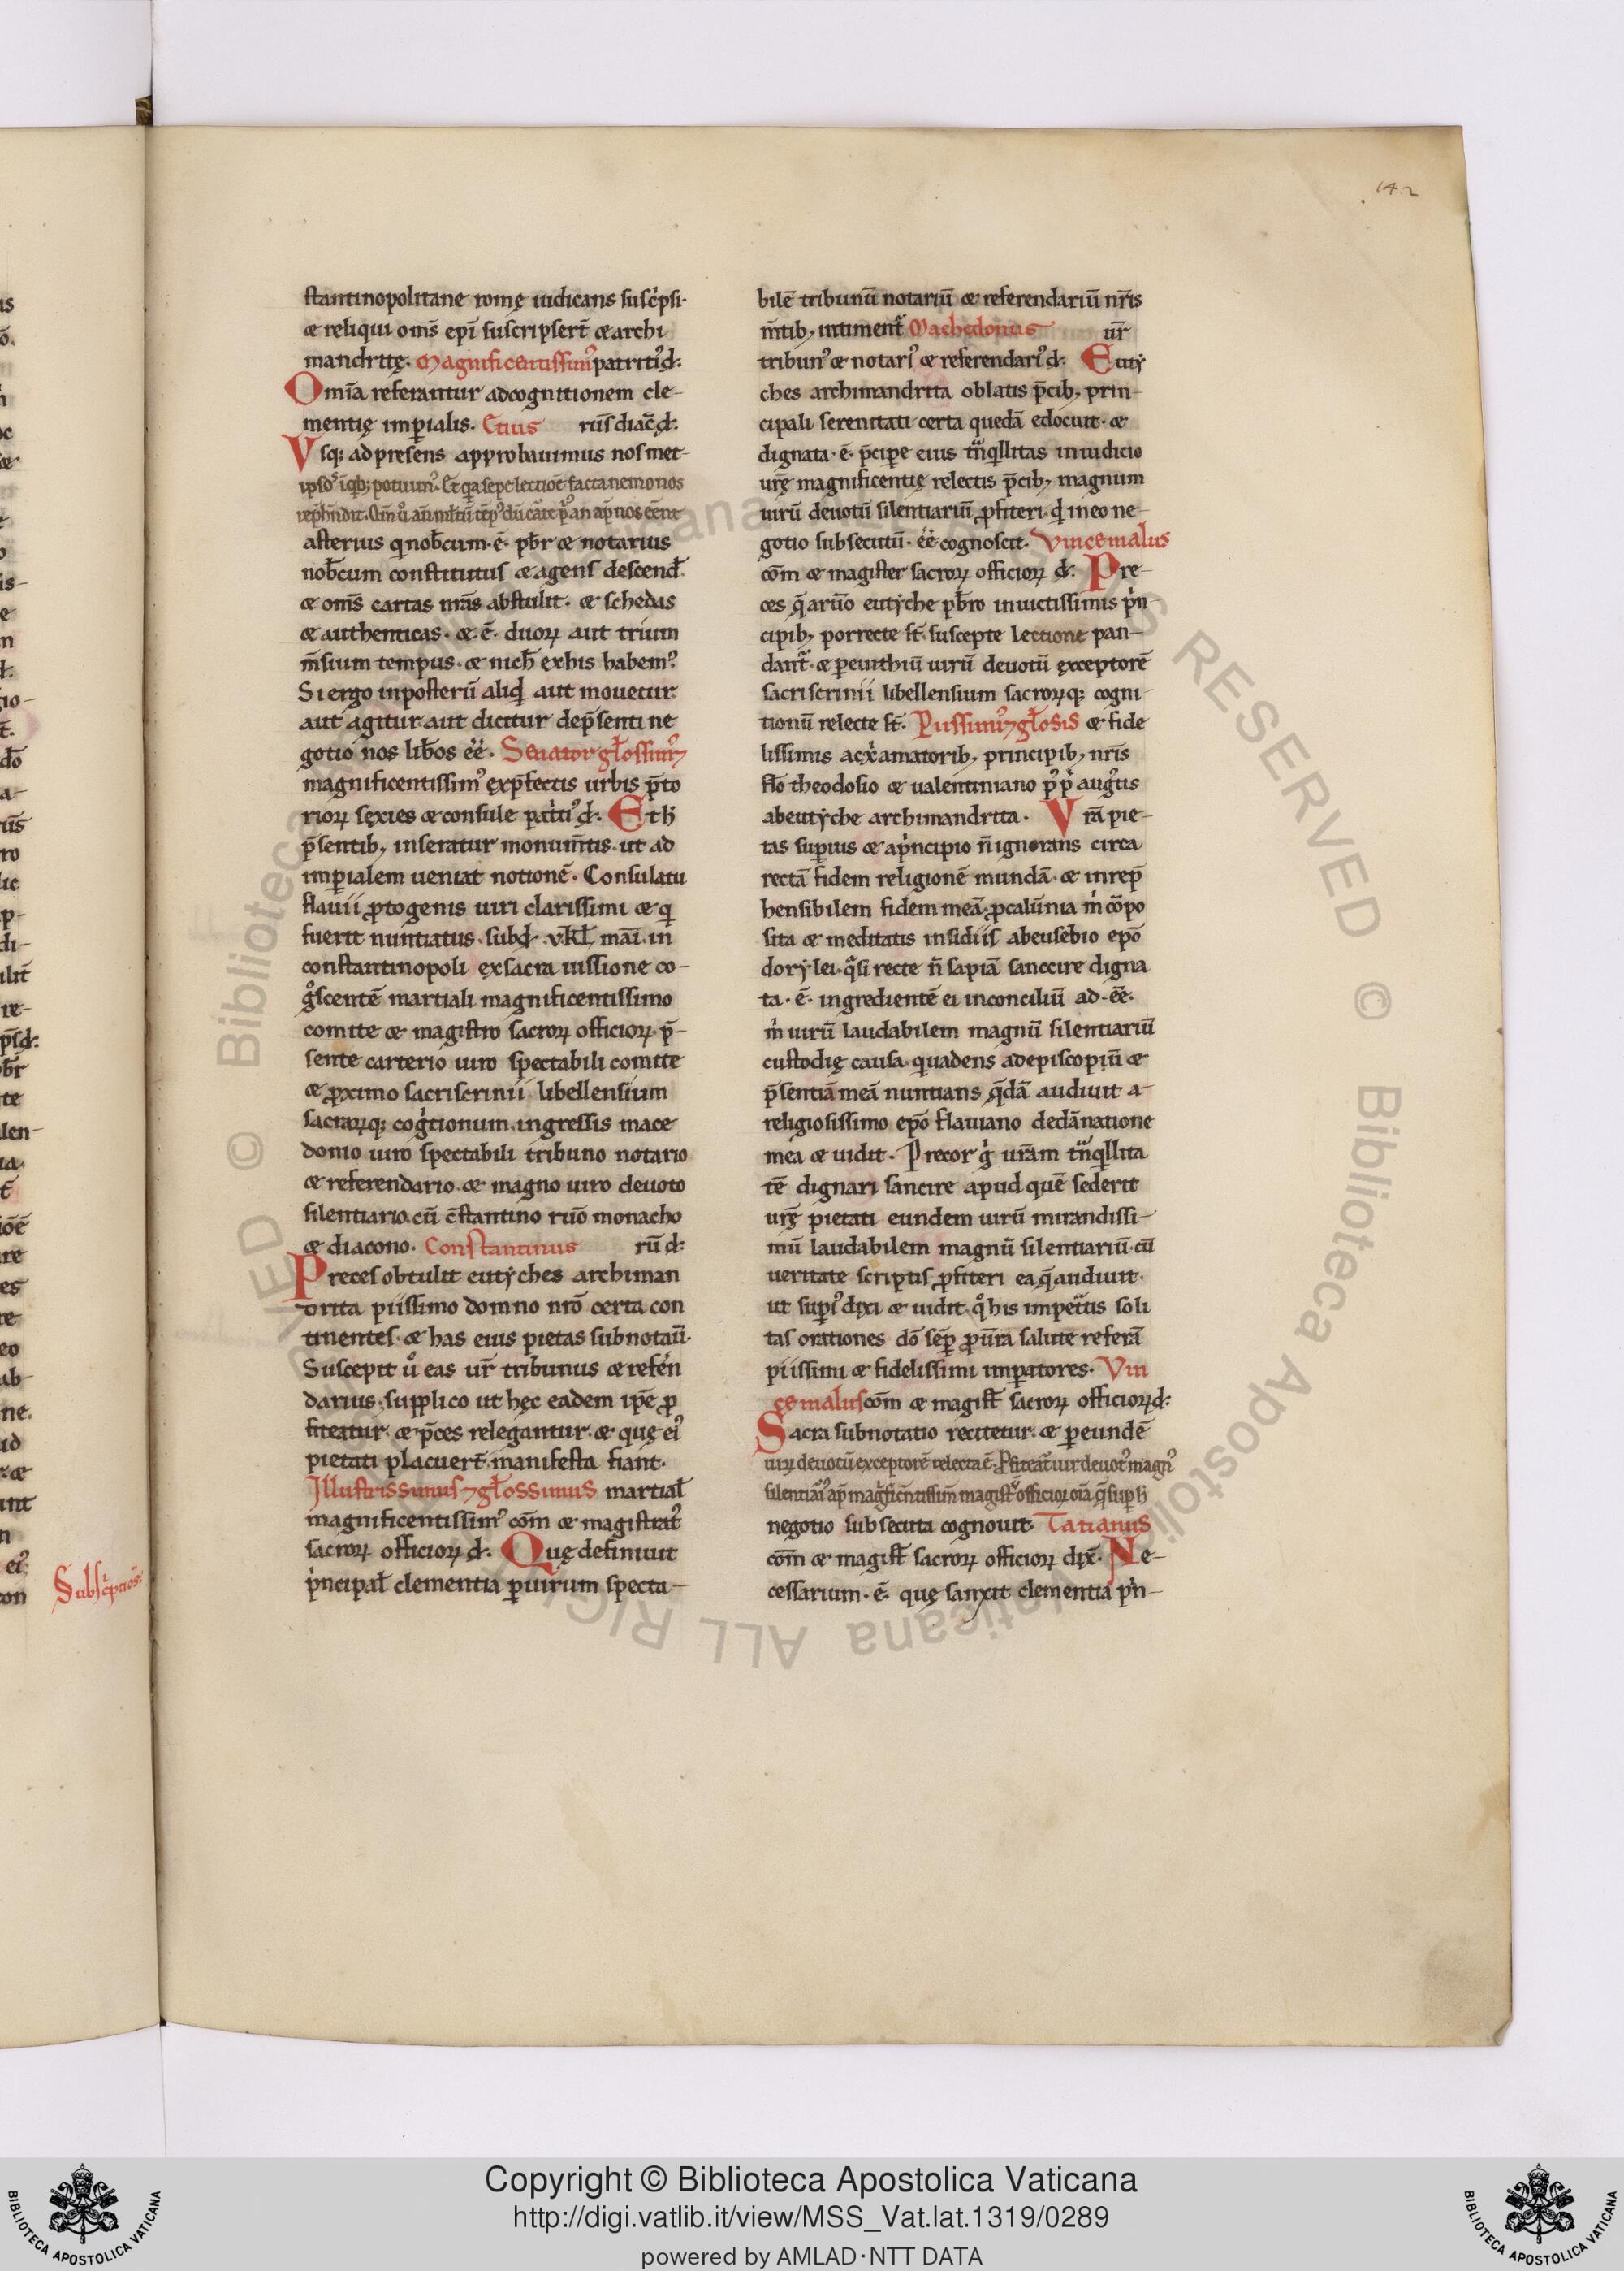 142
stantinopolitane romę iudicans suscͥpsi.
& reliqui om̄s epī suscripserт̄ & archi
mandritę. Magnificentissim᾿ patriti᾿ d̄:
Omīa referantur ad cognitionem cle-
mentię imp̄ialis. Etius rūs diac̄ d̄:
Vsq; ad presens approbauimus nos met-
asterius q nob̄cum .ē. pb̄r & notarius
nob̄cum constitutus & agens descend̄.
& om̄s cartas nr̄as abstulit. & schedas
& authenticas. & .ē. duoꝝ aut trium
m̄sium tempus. & nich̄ ex his habem᾿.
Si ergo in posterū aliqd̄ aut mouetur
aut agitur aut dicitur de p̄senti ne
gotio nos lib̄os ēē. Senator gl̄ossim᾿
magnificentissim᾿ exp̄fectis urbis p̄to
rioꝝ sexies & consule patͥti᾿ d̄. Et h̄
p̄sentib; inseratur monum̄tis. ut ad
imp̄ialem ueniat notionē. Consulatu
flauii ꝓtogenis uiri clarissimi & q
fuerit nuntiatus. sub d̄. v. kl̄. maī. in
constantinopoli ex sacra iussione co-
gͦscentē martiali magnificentissimo
comite & magistro sacroꝝ officioꝝ. p̄-
sente carterio uiro spectabili comite
& ꝓximo sacri scrinii libellensium
sacraꝝq; cogͥtionum. ingressis mace
donio uiro spectabili tribuno notario
& referendario. & magno uiro deuoto
silentiario. cū c̄stantino rūo monacho
& diacono. Constantinus rū d̄:
Preces obtulit eutyches archiman
drita piissimo domno nr̄o certa con
tinentes. & has eius pietas subnotaū.
Suscepit uͦ eas ur̄ tribunus & referͥn
darius. supplico ut hęc eadem ip̄e ꝓ
fiteatur. & p̄ces relegantur. & quę ei᾿
pietati placuerт̄ manifesta fiant.
Illustrissimus ⁊ gl̄ossimus martial̄
magnificentissim᾿ com̄ & magistrat᾿
sacroꝝ officioꝝ d̄. Quę definiuit
pͥncipal̄ clementia ꝑ uirum specta-
bilē tribunū notariū & referendariū nr̄is
m̄tib; intiment᾿ Machedonius ur̄
tribun᾿ & notari᾿ & referendari᾿ d̄: Euty
ches archimandrita oblatis p̄cib; prin-
cipali serenitati certa quedā edocuit. &
dignata .ē. p̄cipe eius tnͣqllitas in iudicio
urę̄ magnificentię relectis p̄cib; magnum
uirū deuotū silentiariū ꝓfiteri. qd̄ in eo ne-
gotio subsecutū. ēē cognoscit. Vincemalus
com̄ & magister sacroꝝ officioꝝ d̄: Pre-
ces q̄ a rūo eutyche pb̄ro inuictissimis pͥn-
cipib; porrecte st̄. suscepte lectione pan-
dantͣ. & ꝑ euithiū uirū deuotū exceptorē
sacri scrinii libellensium sacroꝝq; cogni-
tionū relecte st̄. Piissimis ⁊ gl̄osis & fide
lissimis ac xͥ amatorib; principib; nr̄is
flo theodosio & ualentiniano pͥpͥ aug᾿tis
ab eutyche archimandrita. Vrā pie-
tas supius & a pͥncipio n̄ ignorans circa
rectā fidem religionē mundā. & in rep̄
hensibilem fidem meā. ꝓ calūnia mͥ cōpo
sita & meditatis insidiis ab eusebio epō
dorylei. qͣsi recte n̄ sapiā sanccire digna
ta .ē. ingredientē ei in conciliū ad .ēē.
mͥ uirū laudabilem magnū silentiariū
custodię causa. qui uadens ad episcopiū &
p̄sentiā meā nuntians q̄dā audiuit a-
religiosissimo epō flauiano de dānatione
mea & uidit. Precor gͥ urām tnͣqllita
tē dignari sancire apud quē sederit
urę̄ pietati eundem uirū mirandissi-
mū laudabilem magnū silentiariū. cū
ueritate scriptis ꝓfiteri ea q̄ audiuit.
ut supi᾿ dixi & uidit. qͦ his impetͣtis soli
tas orationes dō sēp ꝓ ūra salute referā
piissimi & fidelissimi imꝑatores. Vin
cemalus com̄ & magist̄ sacroꝝ officioꝝ d̄:
Sacra subnotatio recitetur. & ꝑ eundē
negotio subsecuta cognouit. Tatianus
com̄ & magist̄ sacroꝝ officioꝝ dix̄. Ne-
cessarium .ē. quę sanxit clementia pͥn-
Subscͥptiōs:
Copyright © Biblioteca Apostolica Vaticana
http://digi.vatlib.it/view/MSS_Vat.lat.1319/0289
powered by AMLAD·NTT DATA
BIBLIOTECA APOSTOLICA VATICANA
BIBLIOTECA APOSTOLICA VATICANA